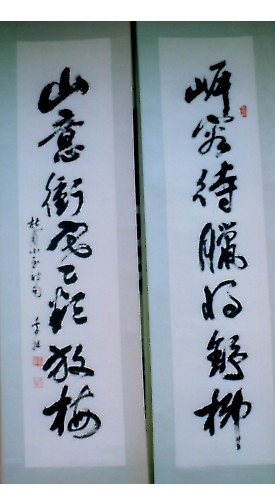 岸容待臘將舒柳
山意衝寒欲放梅
杜甫小至詩句